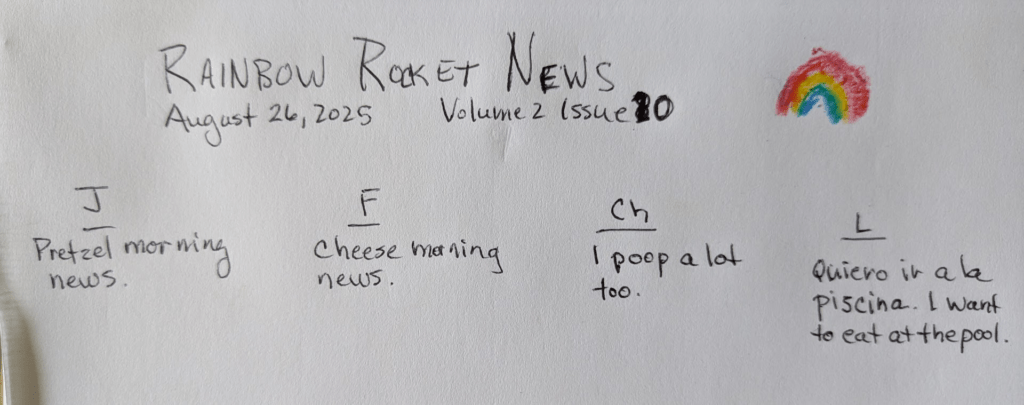 RAINBOW ROCKET NEWS
August 26, 2025 Volume 2 Issue 10
J
Pretzel morning
news.
F
Cheese morning
news.
Ch
I poop a lot
too.
L
Quiero ir a la
piscina. I want
to eat at the pool.